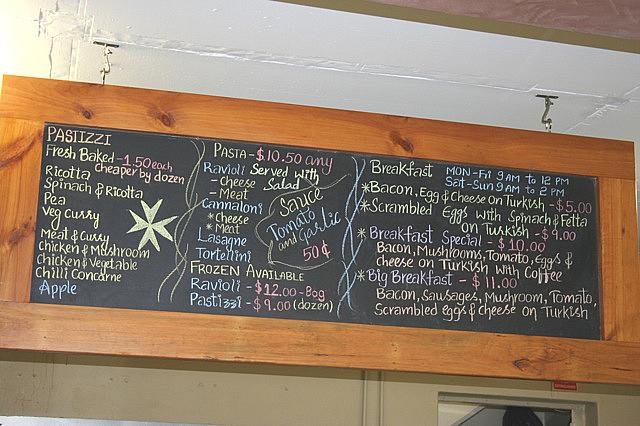 PASTIZZI
Fresh Baked -1.50 each
cheaper by dozen
Ricotta
Spinach & Ricotta
Pea
Veg curry
Meat & Curry
chicken & Mushroom
Chicken & Vegetable
Chilli Concarne
Apple
PASTA - $10.50 any
Ravioli Served with
Salad
- Cheese
- Meat
Cannaloni
* Cheese
* Meat
Lasagne
Tortellini
Sauce
Tomato
and Garlic
50¢
FROZEN AVAILABLE
Ravioli - $12.00 - Bag
Pastizzi - $9.00 (dozen)
Breakfast MON-Fri 9AM to 12 PM
Sat-Sun 9AM to 2 PM
* Bacon, Egg & Cheese on Turkish - $5.00
* Scrambled Eggs with Spinach & Fetta
on Turkish - $9.00
* Breakfast Special - $10.00
Bacon, Mushrooms, Tomato, Eggs &
cheese on Turkish with Coffee
* Big Breakfast - $11.00
Bacon, Sausages, Mushroom, Tomato,
Scrambled eggs & cheese on Turkish